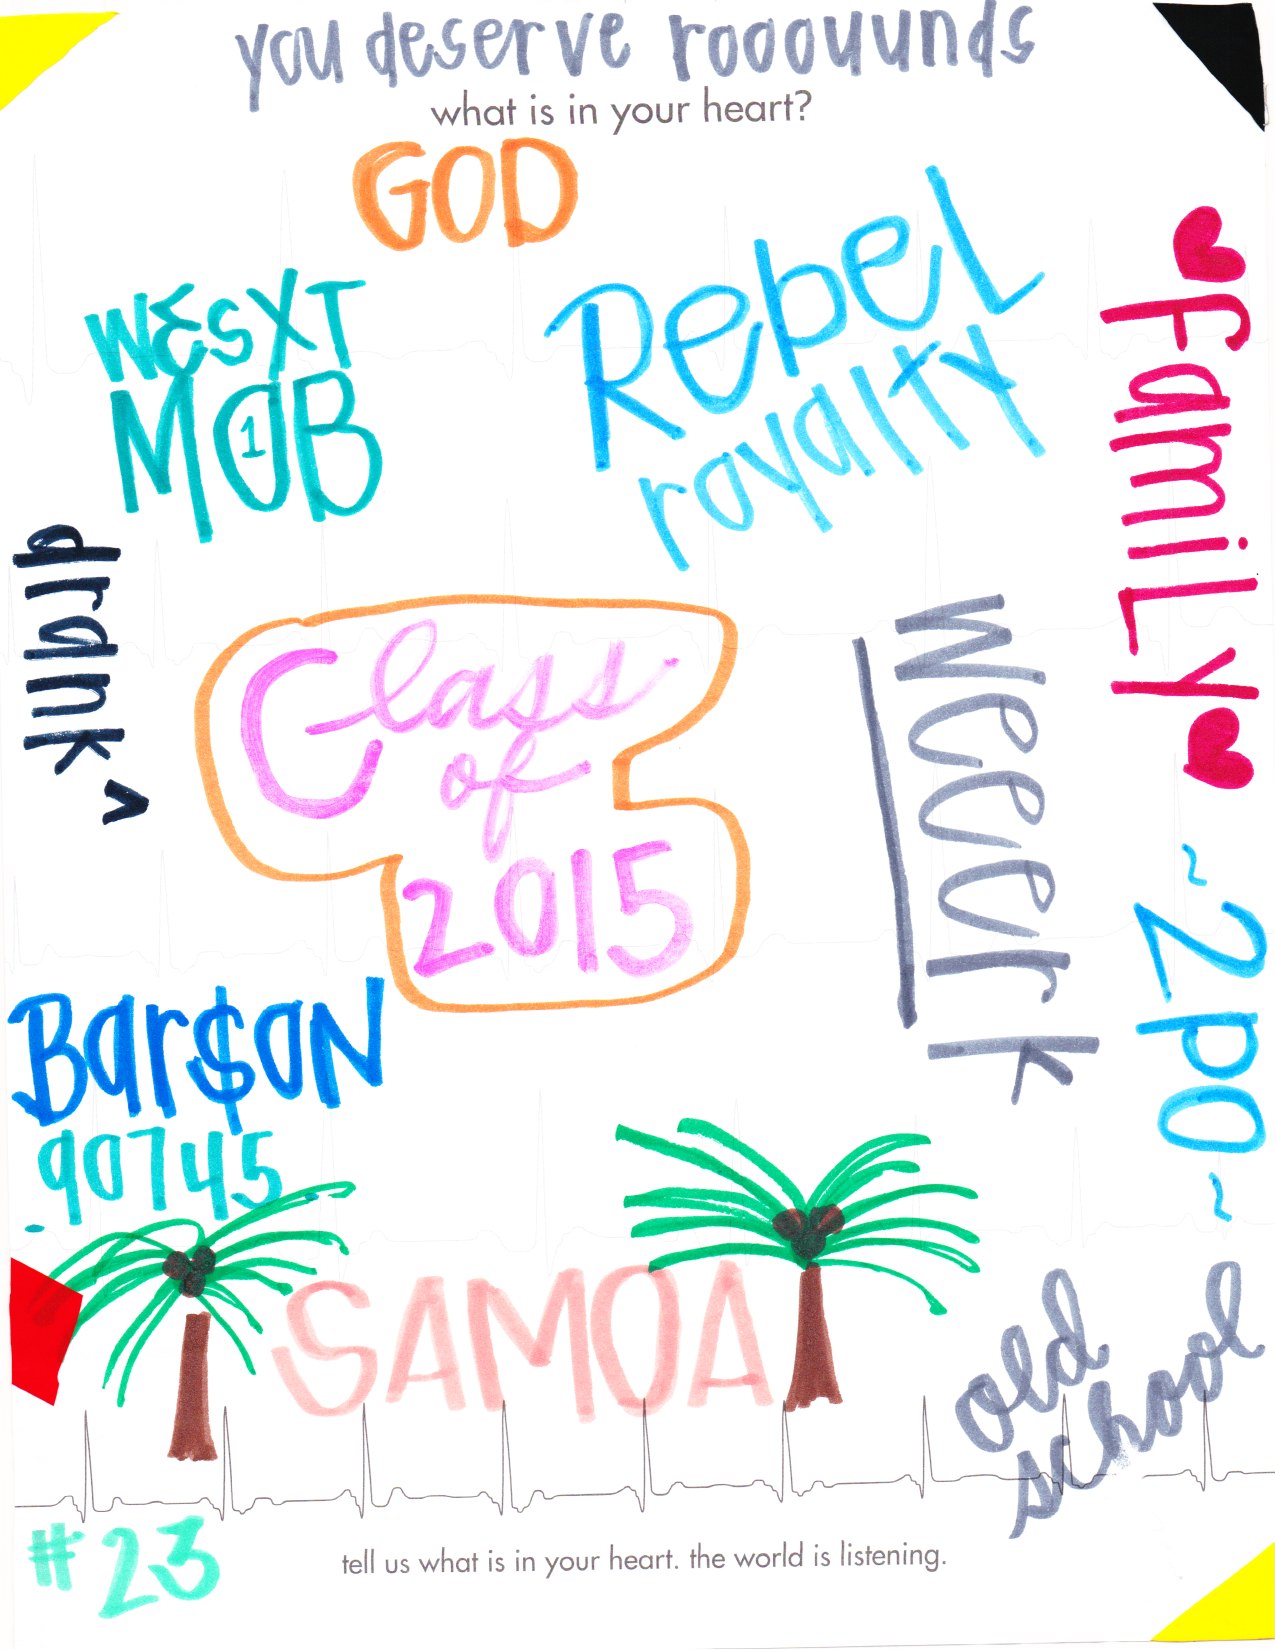 you deserve rooouunds
what is in your heart?
GOD
WESXT
MOB
1
Rebel
royalty
famiLy
drank ^
Class
of
2015
Weeerk
~2po~
Bar$oN
90745
SAMOA
old
school
#23
tell us what is in your heart. the world is listening.